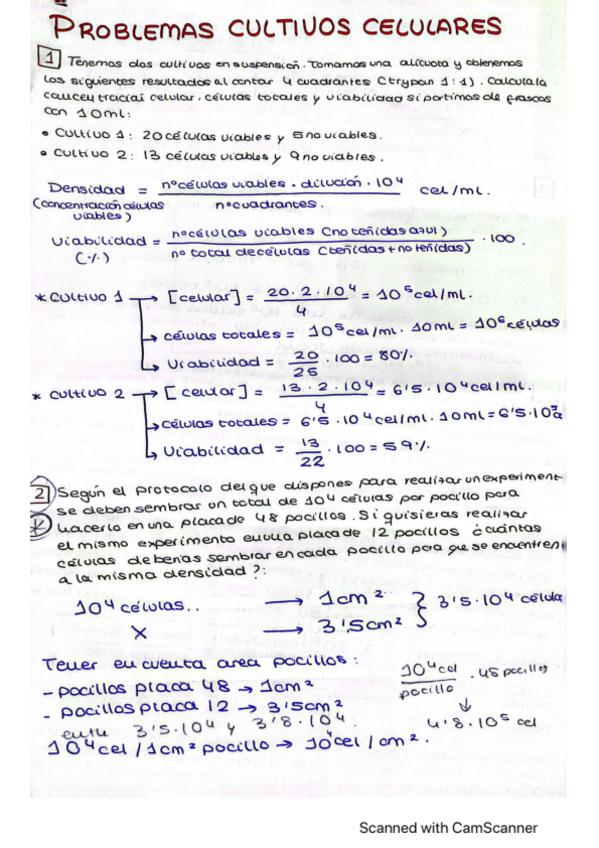 PROBLEMAS CULTIVOS CELULARES
1 Tenemos dos cultivos en suspensión. Tomamos una alícuota y obtenemos
los siguientes resultados al contar 4 cuadrantes (trypan 1:1). Calcula la
concentración celular, células totales y viabilidad si partimos de frascos
con 10ml:
• Cultivo 1: 20 células viables y 5 no viables.
• Cultivo 2: 13 células viables y 9 no viables.
Densidad = nº células viables · dilución · 10⁴ / nº cuadrantes. cel/ml.
(concentración células viables)
Viabilidad = nº células viables (no teñidas azul) / nº total de células (teñidas + no teñidas) · 100.
(%)
* Cultivo 1 → [celular] = 20 · 2 · 10⁴ / 4 = 10⁵ cel/ml.
→ células totales = 10⁵ cel/ml · 10ml = 10⁶ células
→ Viabilidad = 20/25 · 100 = 80%.
* Cultivo 2 → [celular] = 13 · 2 · 10⁴ / 4 = 6'5 · 10⁴ cel/ml.
→ células totales = 6'5 · 10⁴ cel/ml · 10ml = 6'5 · 10
→ Viabilidad = 13/22 · 100 = 59%.
2 Según el protocolo del que dispones para realizar un experiment
se deben sembrar un total de 10⁴ células por pocillo para
hacerlo en una placa de 48 pocillos. Si quisieras realizar
el mismo experimento en una placa de 12 pocillos ¿cuántas
células deberías sembrar en cada pocillo para que se encuentren
a la misma densidad?:
10⁴ células.. → 1cm² } 3'5·10⁴ célula
x → 3'5cm²
Tener en cuenta area pocillos:
- pocillos placa 48 → 1cm²
- pocillos placa 12 → 3'5cm²
entre 3'5·10⁴ y 3'8·10⁴.
10⁴ cel / 1cm² pocillo → 10⁴ cel / cm².
10⁴ cel / pocillo · 48 pocillos
↓
4'8·10⁵ cel
Scanned with CamScanner